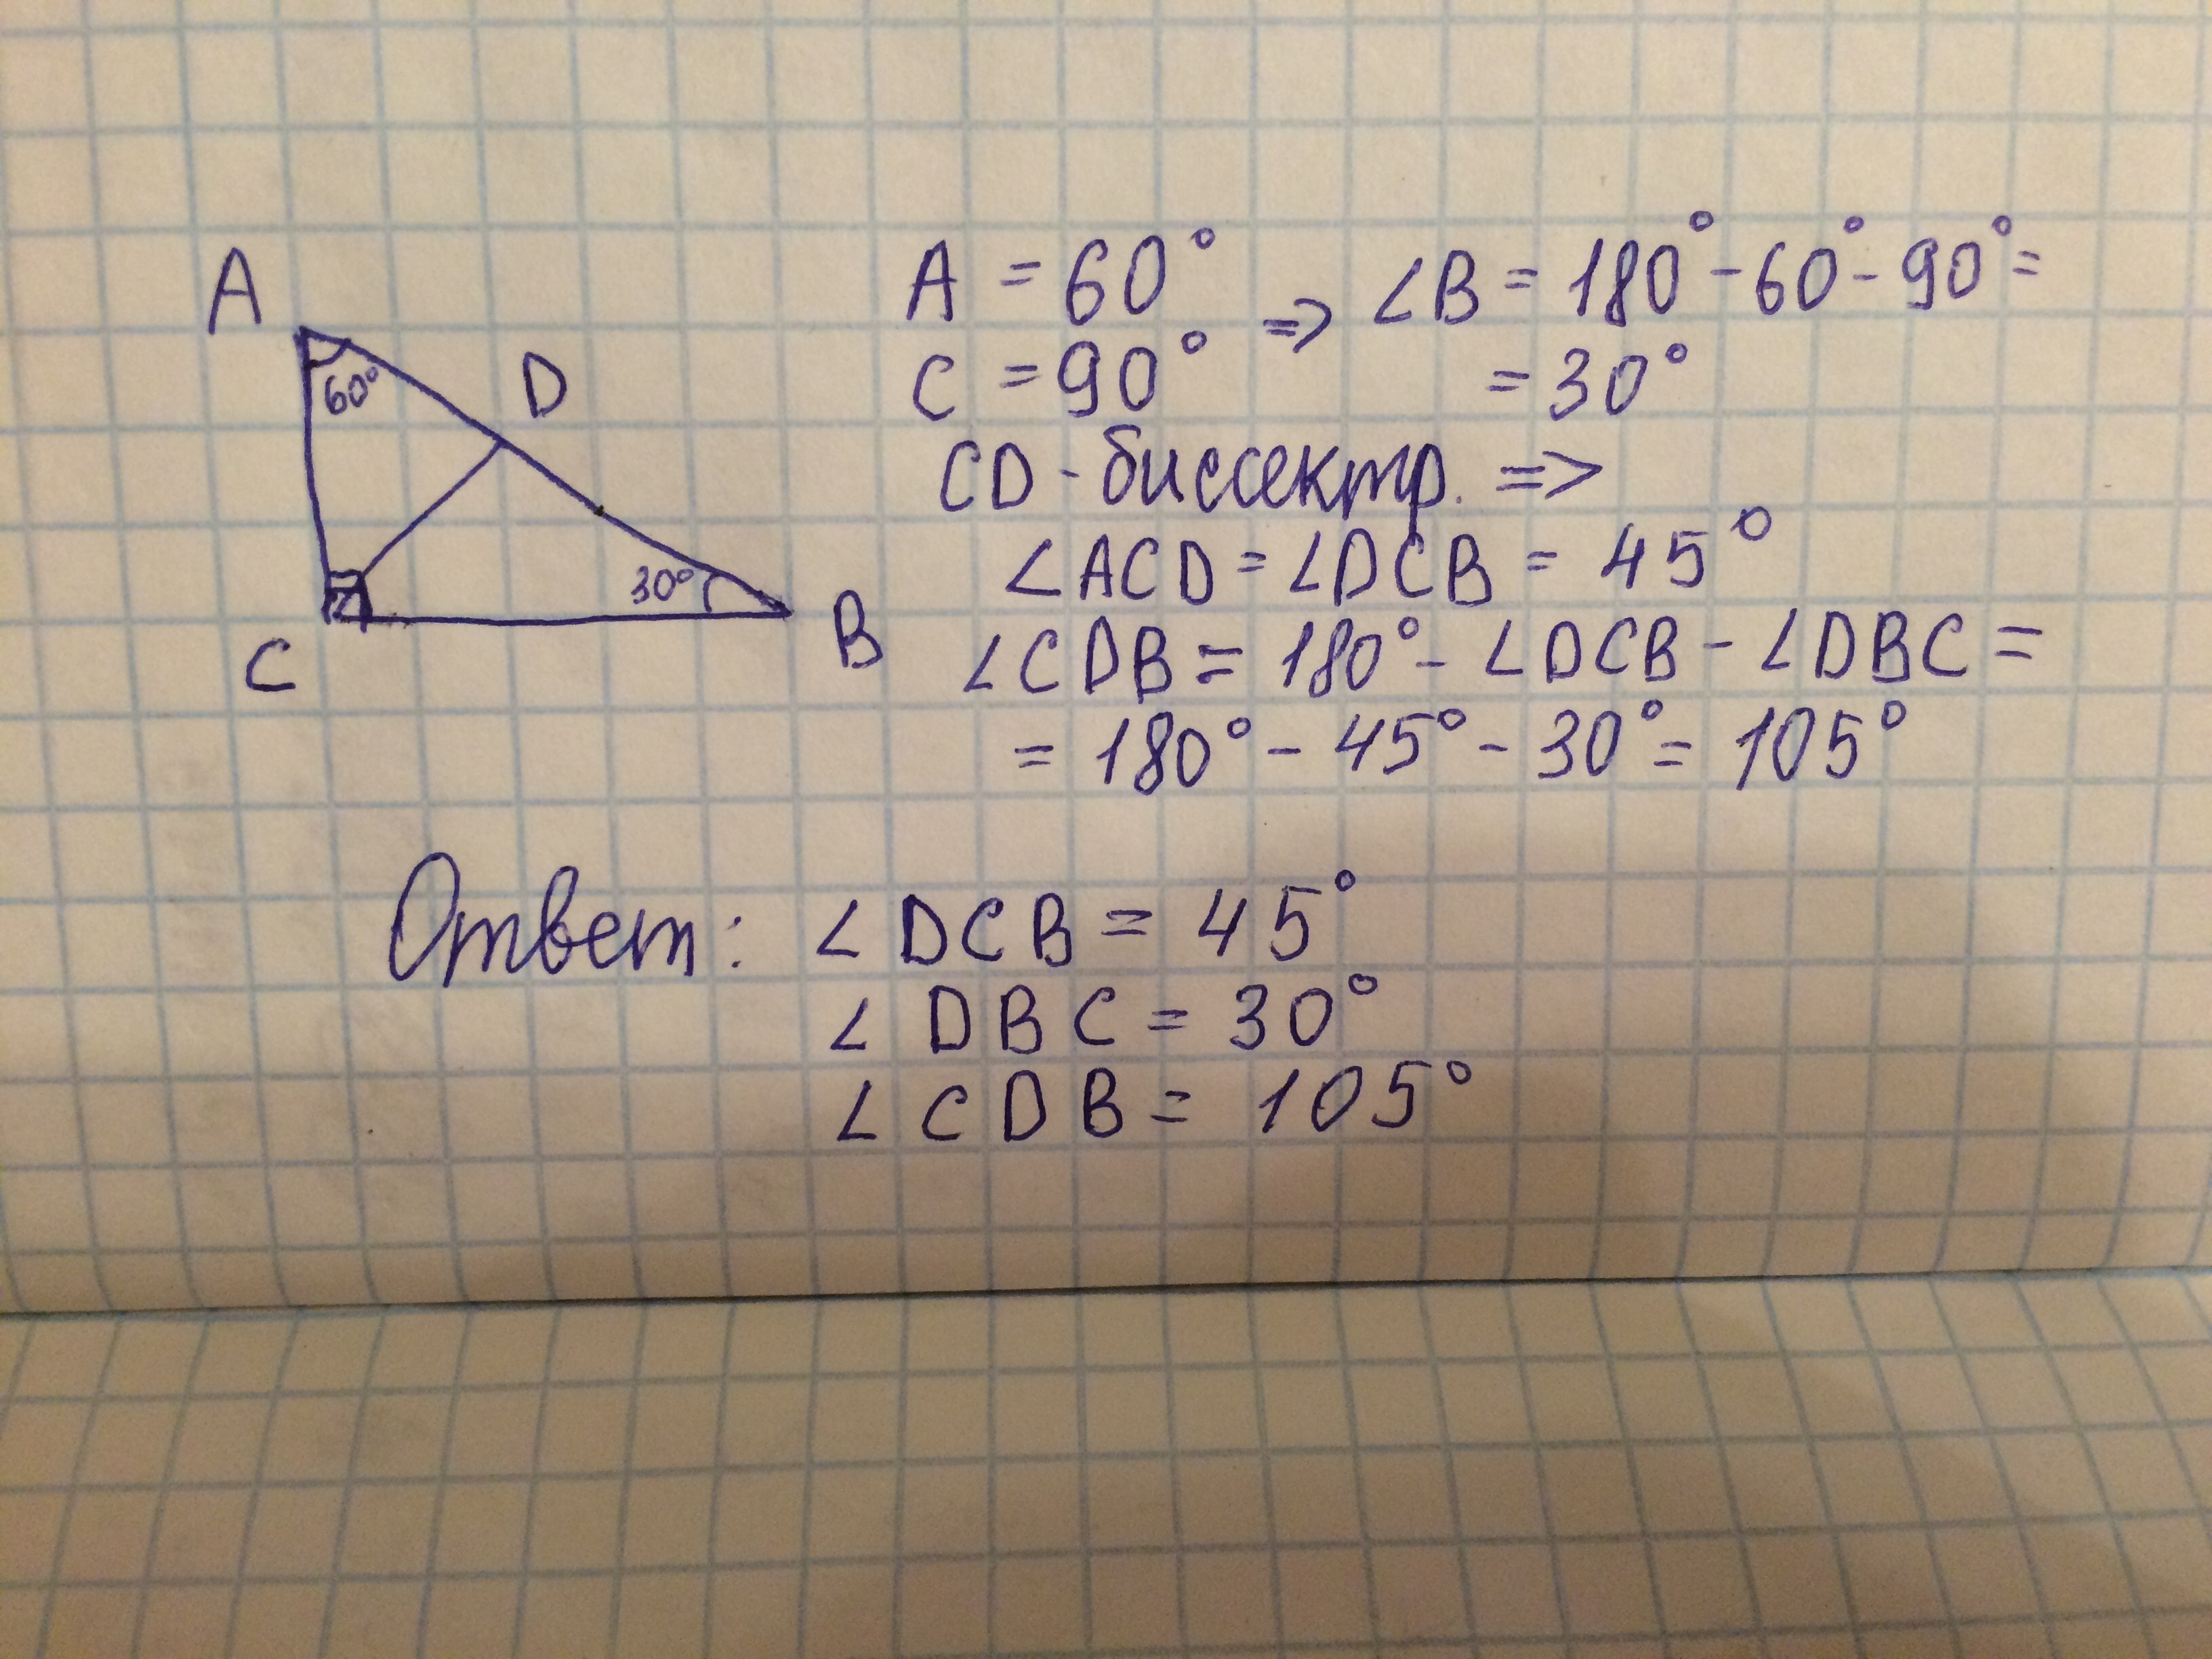 A
60°
D
30°
C
B
A = 60° => ∠B = 180° - 60° - 90° =
C = 90° = 30°
CD - биссектр. =>
∠ACD = ∠DCB = 45°
∠CDB = 180° - ∠DCB - ∠DBC =
= 180° - 45° - 30° = 105°
Ответ: ∠DCB = 45°
∠DBC = 30°
∠CDB = 105°